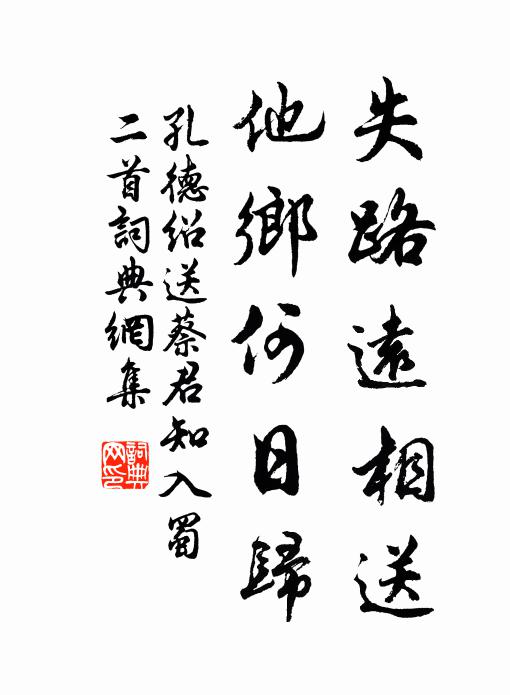 失路遠相送
他鄉何日歸
孔德绍送蔡君知入蜀
二首詞典網集
詞典網印